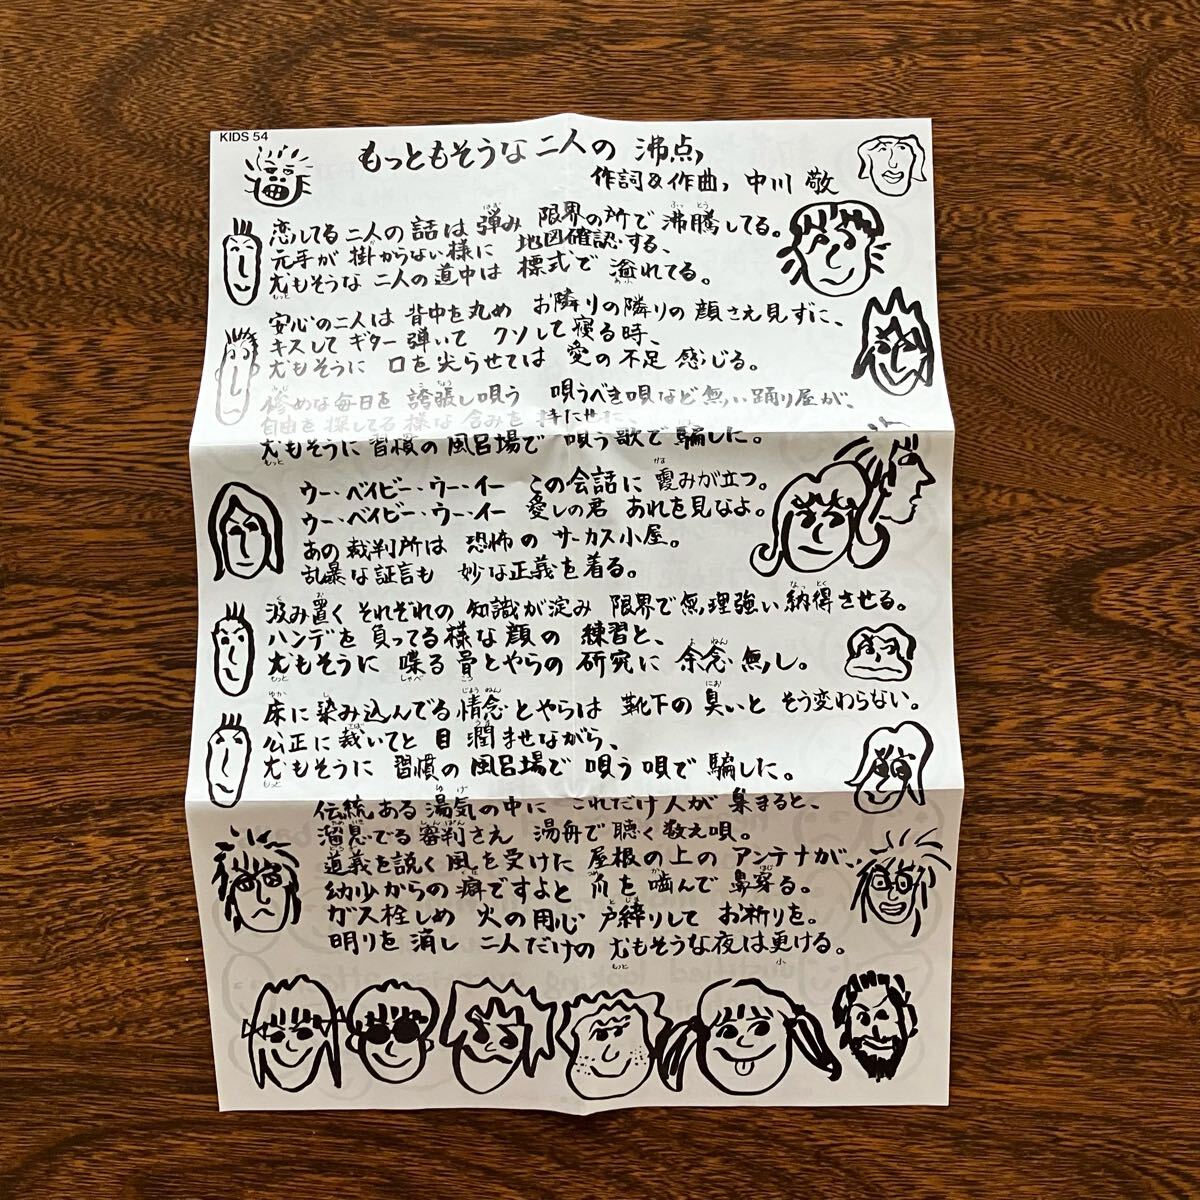 KIDS 54
もっともそうな二人の沸点
作詞&作曲, 中川 敬
恋してる二人の話は弾み 限界の所で沸騰してる。
元手が掛からない様に 地図確認する、
尤もそうな二人の道中は 標式で溢れてる。
安心の二人は 背中を丸め お隣りの隣りの顔さえ見ずに、
キスして ギター弾いて クソして寝る時、
尤もそうに 口を尖らせては 愛の不足感じる。
惨めな毎日を 誇張し唄う 唄うべき唄など無い踊り屋が、
自由を探してる様な含みを持たせた、
尤もそうに 習慣の風呂場で 唄う歌で騙した。
ウー・ベイビー・ウー・イー この会話に 霞みが立つ。
ウー・ベイビー・ウー・イー 愛しの君 あれを見なよ。
あの裁判所は 恐怖の サーカス小屋。
乱暴な証言も 妙な正義を着る。
汲み置く それぞれの 知識が淀み 限界で無理強い納得させる。
ハンデを 負ってる様な顔の 練習と、
尤もそうに 喋る 骨とやらの 研究に 余念無し。
床に染み込んでる情念とやらは 靴下の臭いと そう変わらない。
公正に裁いてと 目潤ませながら、
尤もそうに 習慣の風呂場で 唄う唄で騙した。
伝統ある湯気の中に これだけ人が集まると、
溜息でる審判さえ 湯舟で聴く数え唄。
道義を説く風を受けた 屋根の上の アンテナが、
幼少からの癖ですよと 爪を噛んで 鼻穿る。
ガス栓しめ 火の用心 戸締りして お祈りを。
明りを消し 二人だけの 尤もそうな夜は更ける。